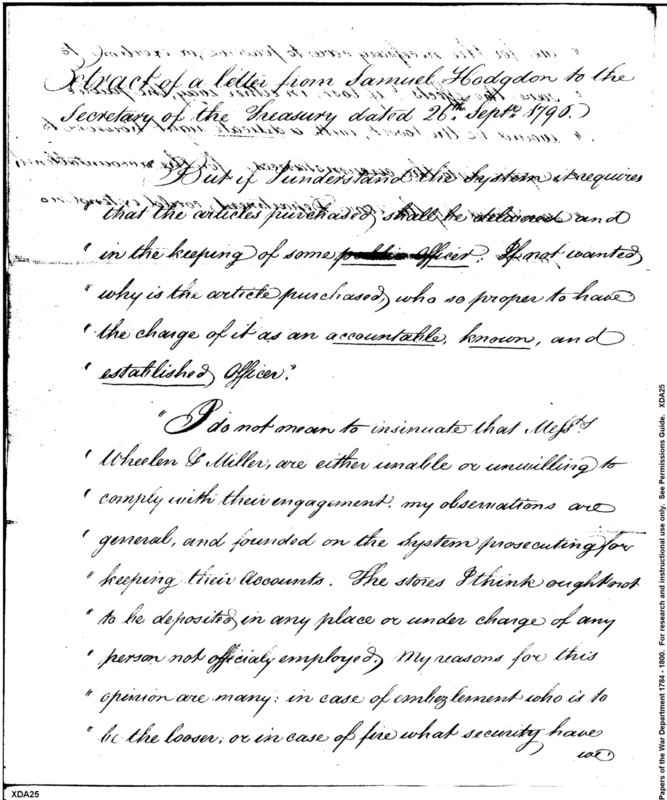 Extract of a letter from Samuel Hodgdon to the
Secretary of the Treasury dated 26th Septr 1790.
"But if I understand the System it requires
that the articles purchased, shall be delivered and
" in the keeping of some public Officer. If not wanted,
" why is the article purchased, who so proper to have
" the charge of it as an accountable, known, and
" established, Officer."
"I do not mean to insinuate that Messrs
" Wheelen & Miller, are either unable or unwilling to
" comply with their engagement. my observations are
" general, and founded on the System prosecuting for
" keeping their Accounts. The stores I think ought not
" to be deposited, in any place or under charge of any
" person not officialy employed. My reasons for this
" opinion are many: in case of embezlement who is to
" be the looser, or in case of fire what security have
we
XDA25
Papers of the War Department 1784 - 1800. For research and instructional use only. See Permissions Guide. XDA25